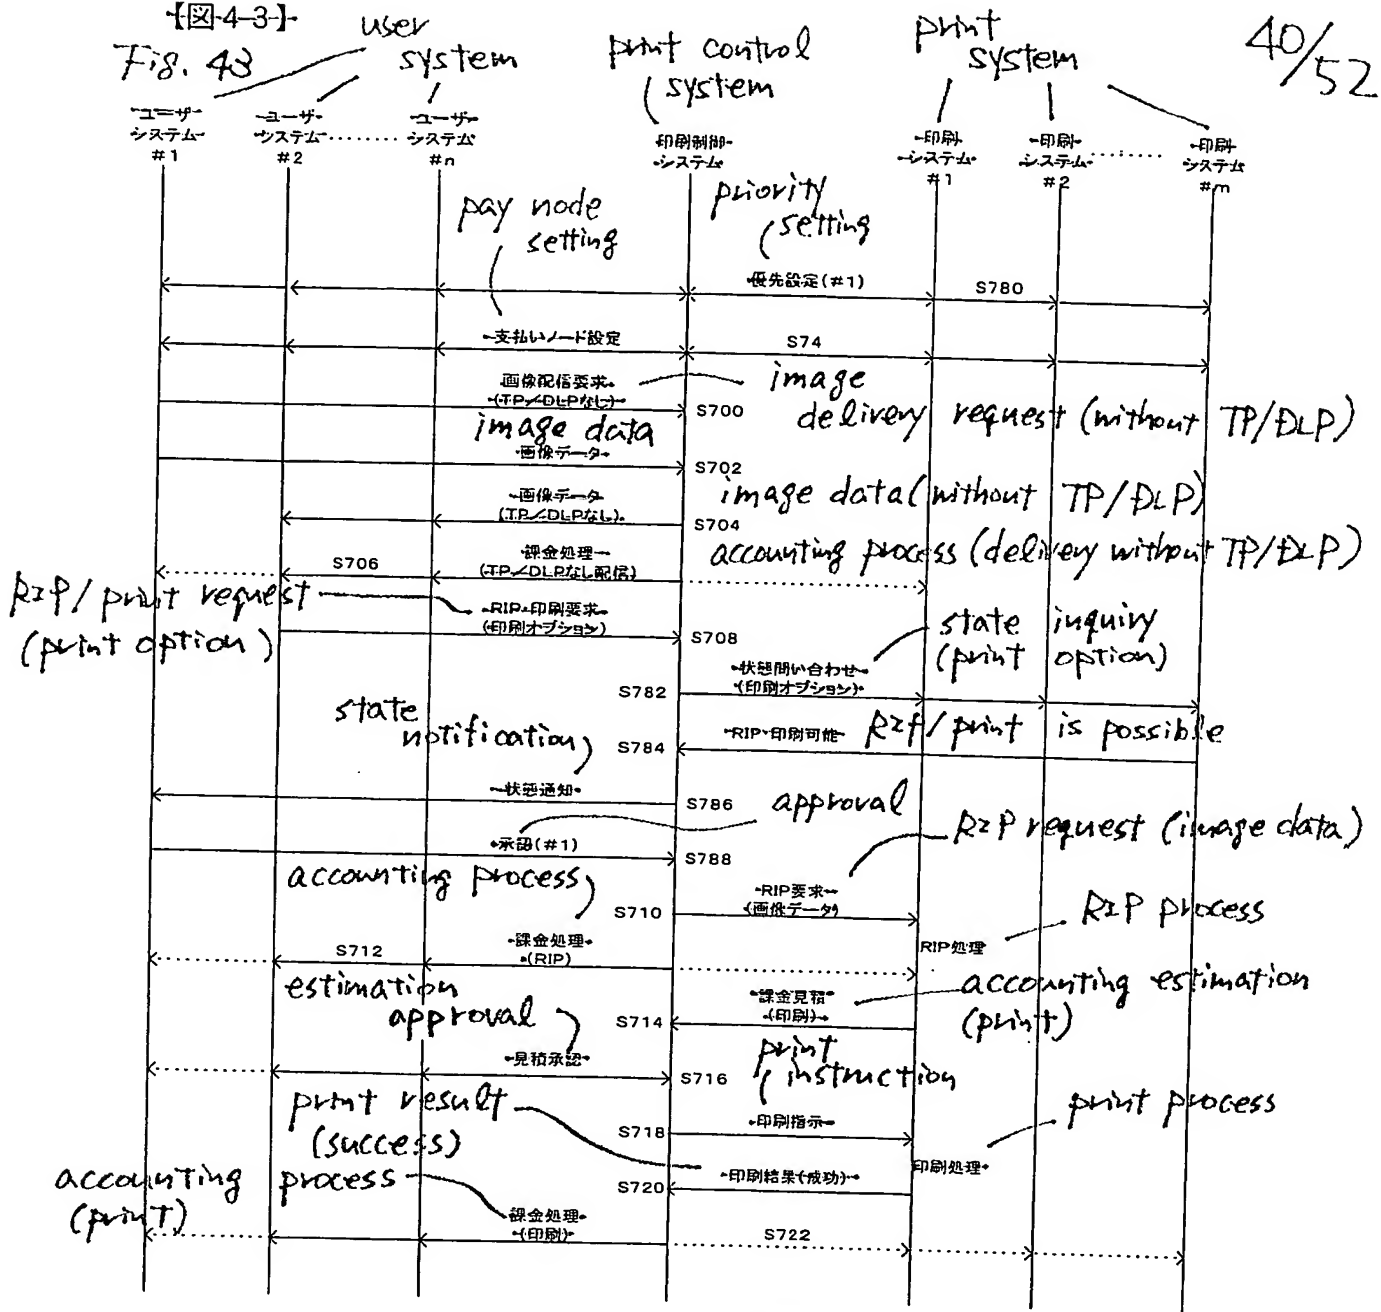 【図43】
Fig. 43
user
system
print control
system
print
system
40/52
ユーザ
システム
#1
ユーザ
システム
#2
ユーザ
システム
#n
印刷制御
システム
印刷
システム
#1
印刷
システム
#2
印刷
システム
#m
pay node
setting
priority
setting
優先設定(#1)
S780
支払いノード設定
S74
画像配信要求
(TP/DLPなし)
S700
image
delivery request (without TP/DLP)
image data
画像データ
S702
画像データ
(TP/DLPなし)
S704
image data (without TP/DLP)
S706
課金処理
(TP/DLPなし配信)
accounting process (delivery without TP/DLP)
RIP/print request
(print option)
RIP・印刷要求
(印刷オプション)
S708
state inquiry
(print option)
S782
状態問い合わせ
(印刷オプション)
state
notification
S784
RIP・印刷可能
RIP/print is possible
状態通知
S786
approval
承認(#1)
S788
RIP request (image data)
accounting process
S710
RIP要求
(画像データ)
RIP process
RIP処理
S712
課金処理
(RIP)
estimation
approval
S714
課金見積
(印刷)
accounting estimation
(print)
見積承認
S716
print
instruction
print result
(success)
S718
印刷指示
print process
印刷処理
S720
印刷結果(成功)
accounting process
(print)
課金処理
(印刷)
S722